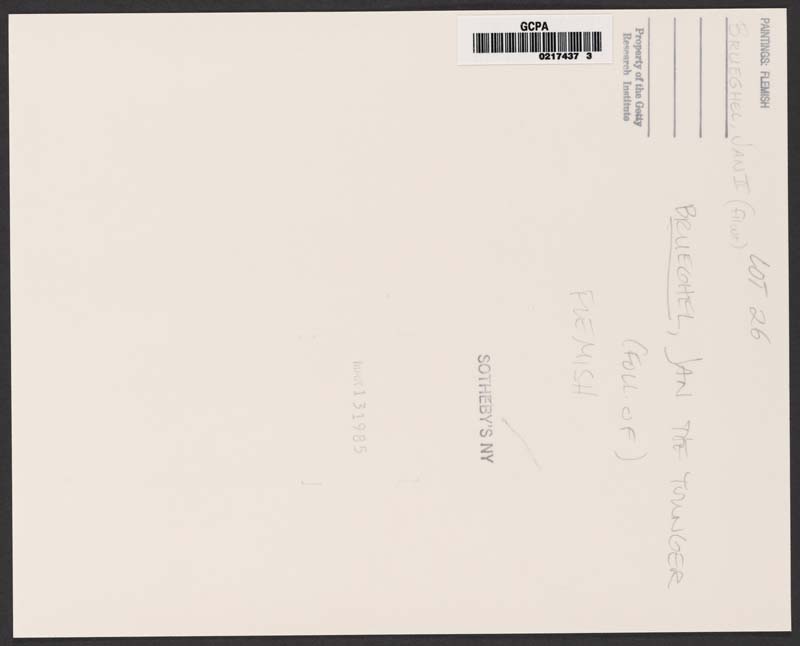 GCPA
0217437 3
PAINTINGS: FLEMISH
BRUEGHEL, JAN II (foll of)
Property of the Getty
Research Institute
LOT 26
BRUEGHEL, JAN THE YOUNGER
(FOLL. OF)
FLEMISH
SOTHEBY'S NY
131985